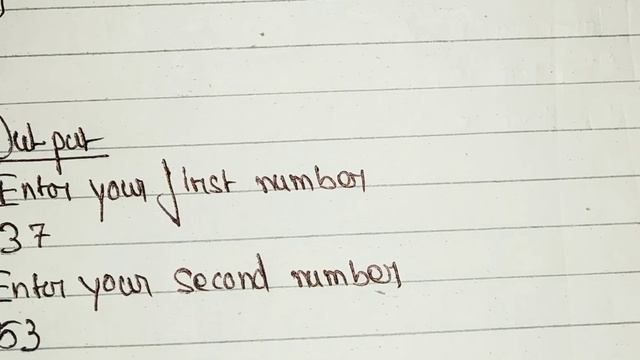 Output
Enter your first number
37
Enter your second number
53